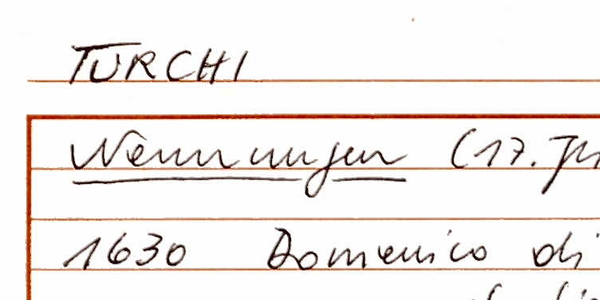 TURCHI
Nennungen (17. Jh
1630 Domenico di